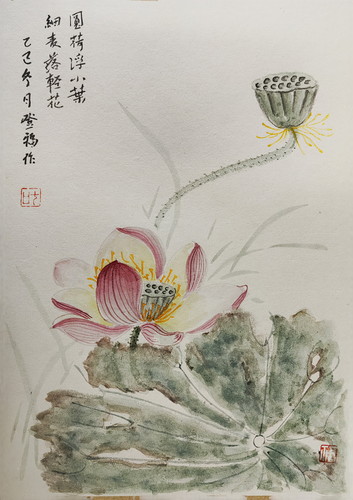 圆荷浮小葉
細麦落輕花
乙巳冬月登福作